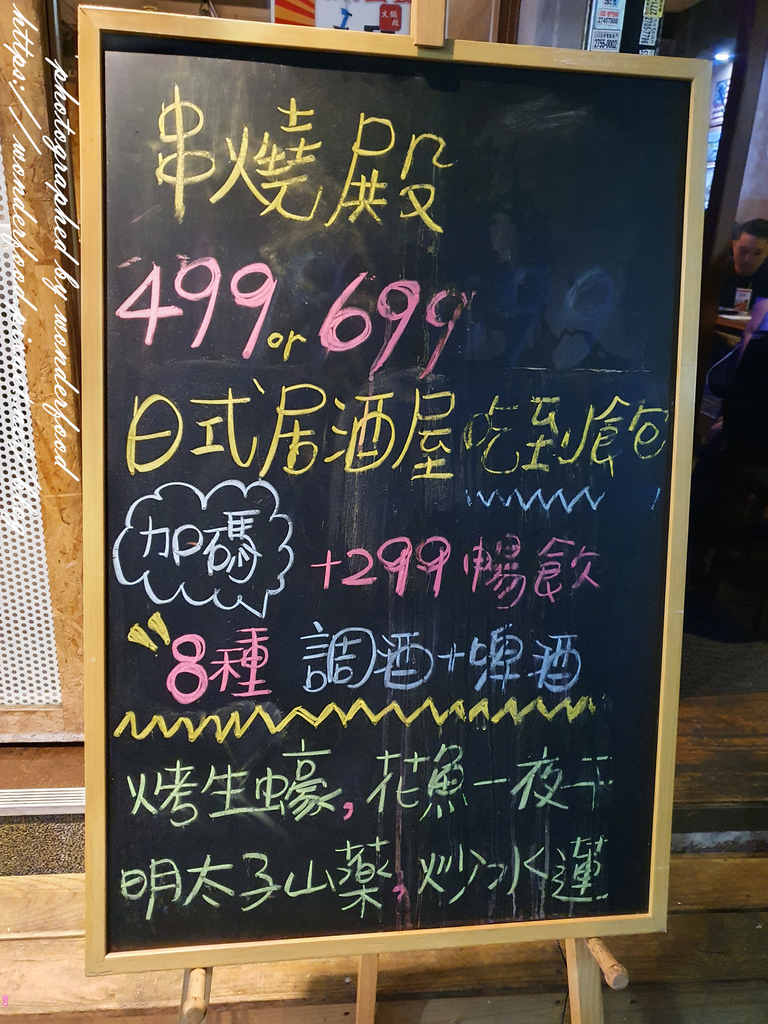 串燒殿
499 or 699
日式居酒屋吃到飽
加碼
+299 暢飲
8種 調酒+啤酒
烤生蠔,花魚一夜干
明太子山藥,炒水蓮
photographed by wonderfood
2755-0002